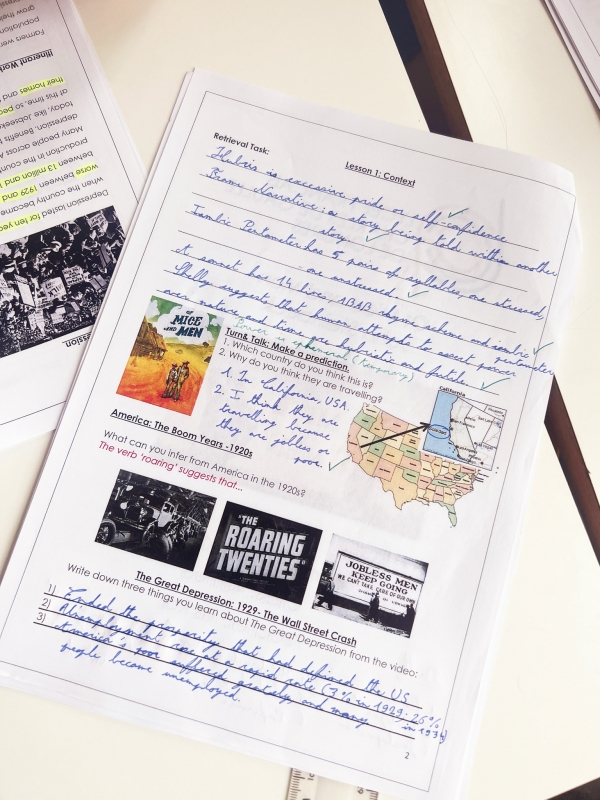 Lesson 1: Context
Retrieval Task:
Hubris is excessive pride or self-confidence
Frame Narrative: a story being told within another
story
Iambic Pentameter has 5 pairs of syllables, one stressed,
one unstressed.
A sonnet has 14 lines, ABAB rhyme scheme and iambic
pentameter
Shelley suggests that human attempts to assert power
over nature and time are hubristic and futile.
Power is ephemeral (temporary)
OF
MICE
AND MEN
Turn& Talk: Make a prediction.
1. Which country do you think this is?
2. Why do you think they are travelling?
1. In California, USA.
2. I think they are
travelling because
they are jobless or
poor.
California
America: The Boom Years -1920s
What can you infer from America in the 1920s?
The verb 'roaring' suggests that...
"THE
ROARING
TWENTIES"
JOBLESS MEN
KEEP GOING
WE CAN'T TAKE CARE OF OUR OWN
The Great Depression: 1929- The Wall Street Crash
Write down three things you learn about The Great Depression from the video:
1) Ended the prosperity that had defined the US
2) Unemployment rose at a rapid rate (3% in 1929; 25%
in 1933)
3) America's poor suffered greatly and many
people became unemployed.
2
Depression lasted for ten yea
when the country became
worse between 1929 and
between 13 million and
production in the count
Many people across A
depression. Benefits
today, like Jobseek
at this time, so peo
their homes and
Itinerant Work
Farmers were
population
grow their